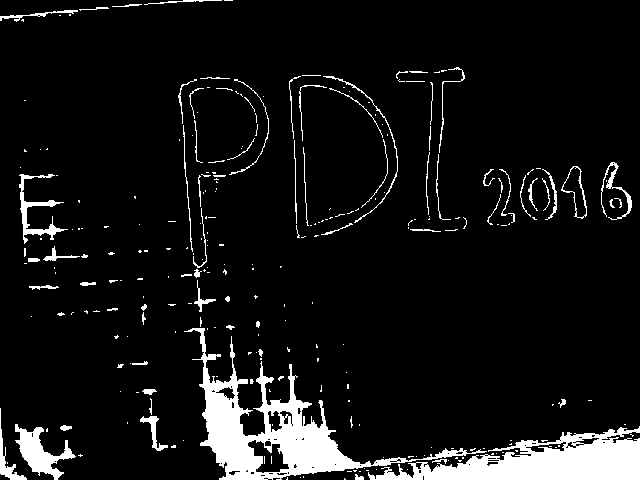 PDI 2016